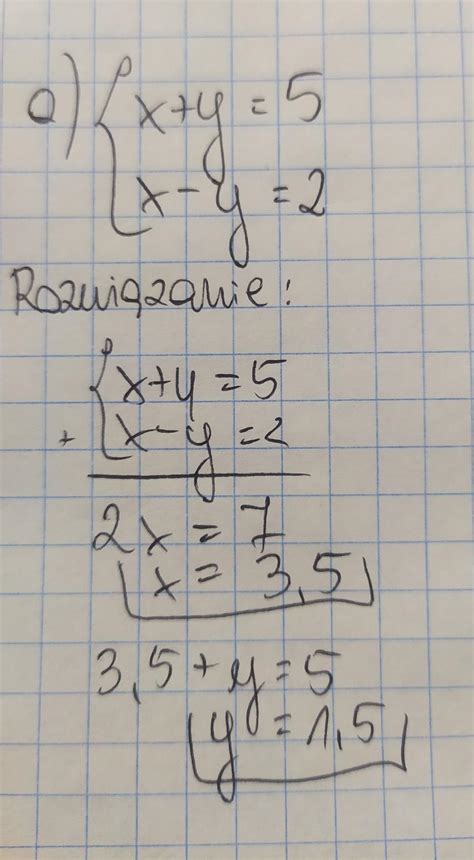 a) { x+y = 5
x-y = 2
Rozwiązanie:
{ x+y = 5
+ x-y = 2
2x = 7
x = 3,5
3,5+y = 5
y = 1,5